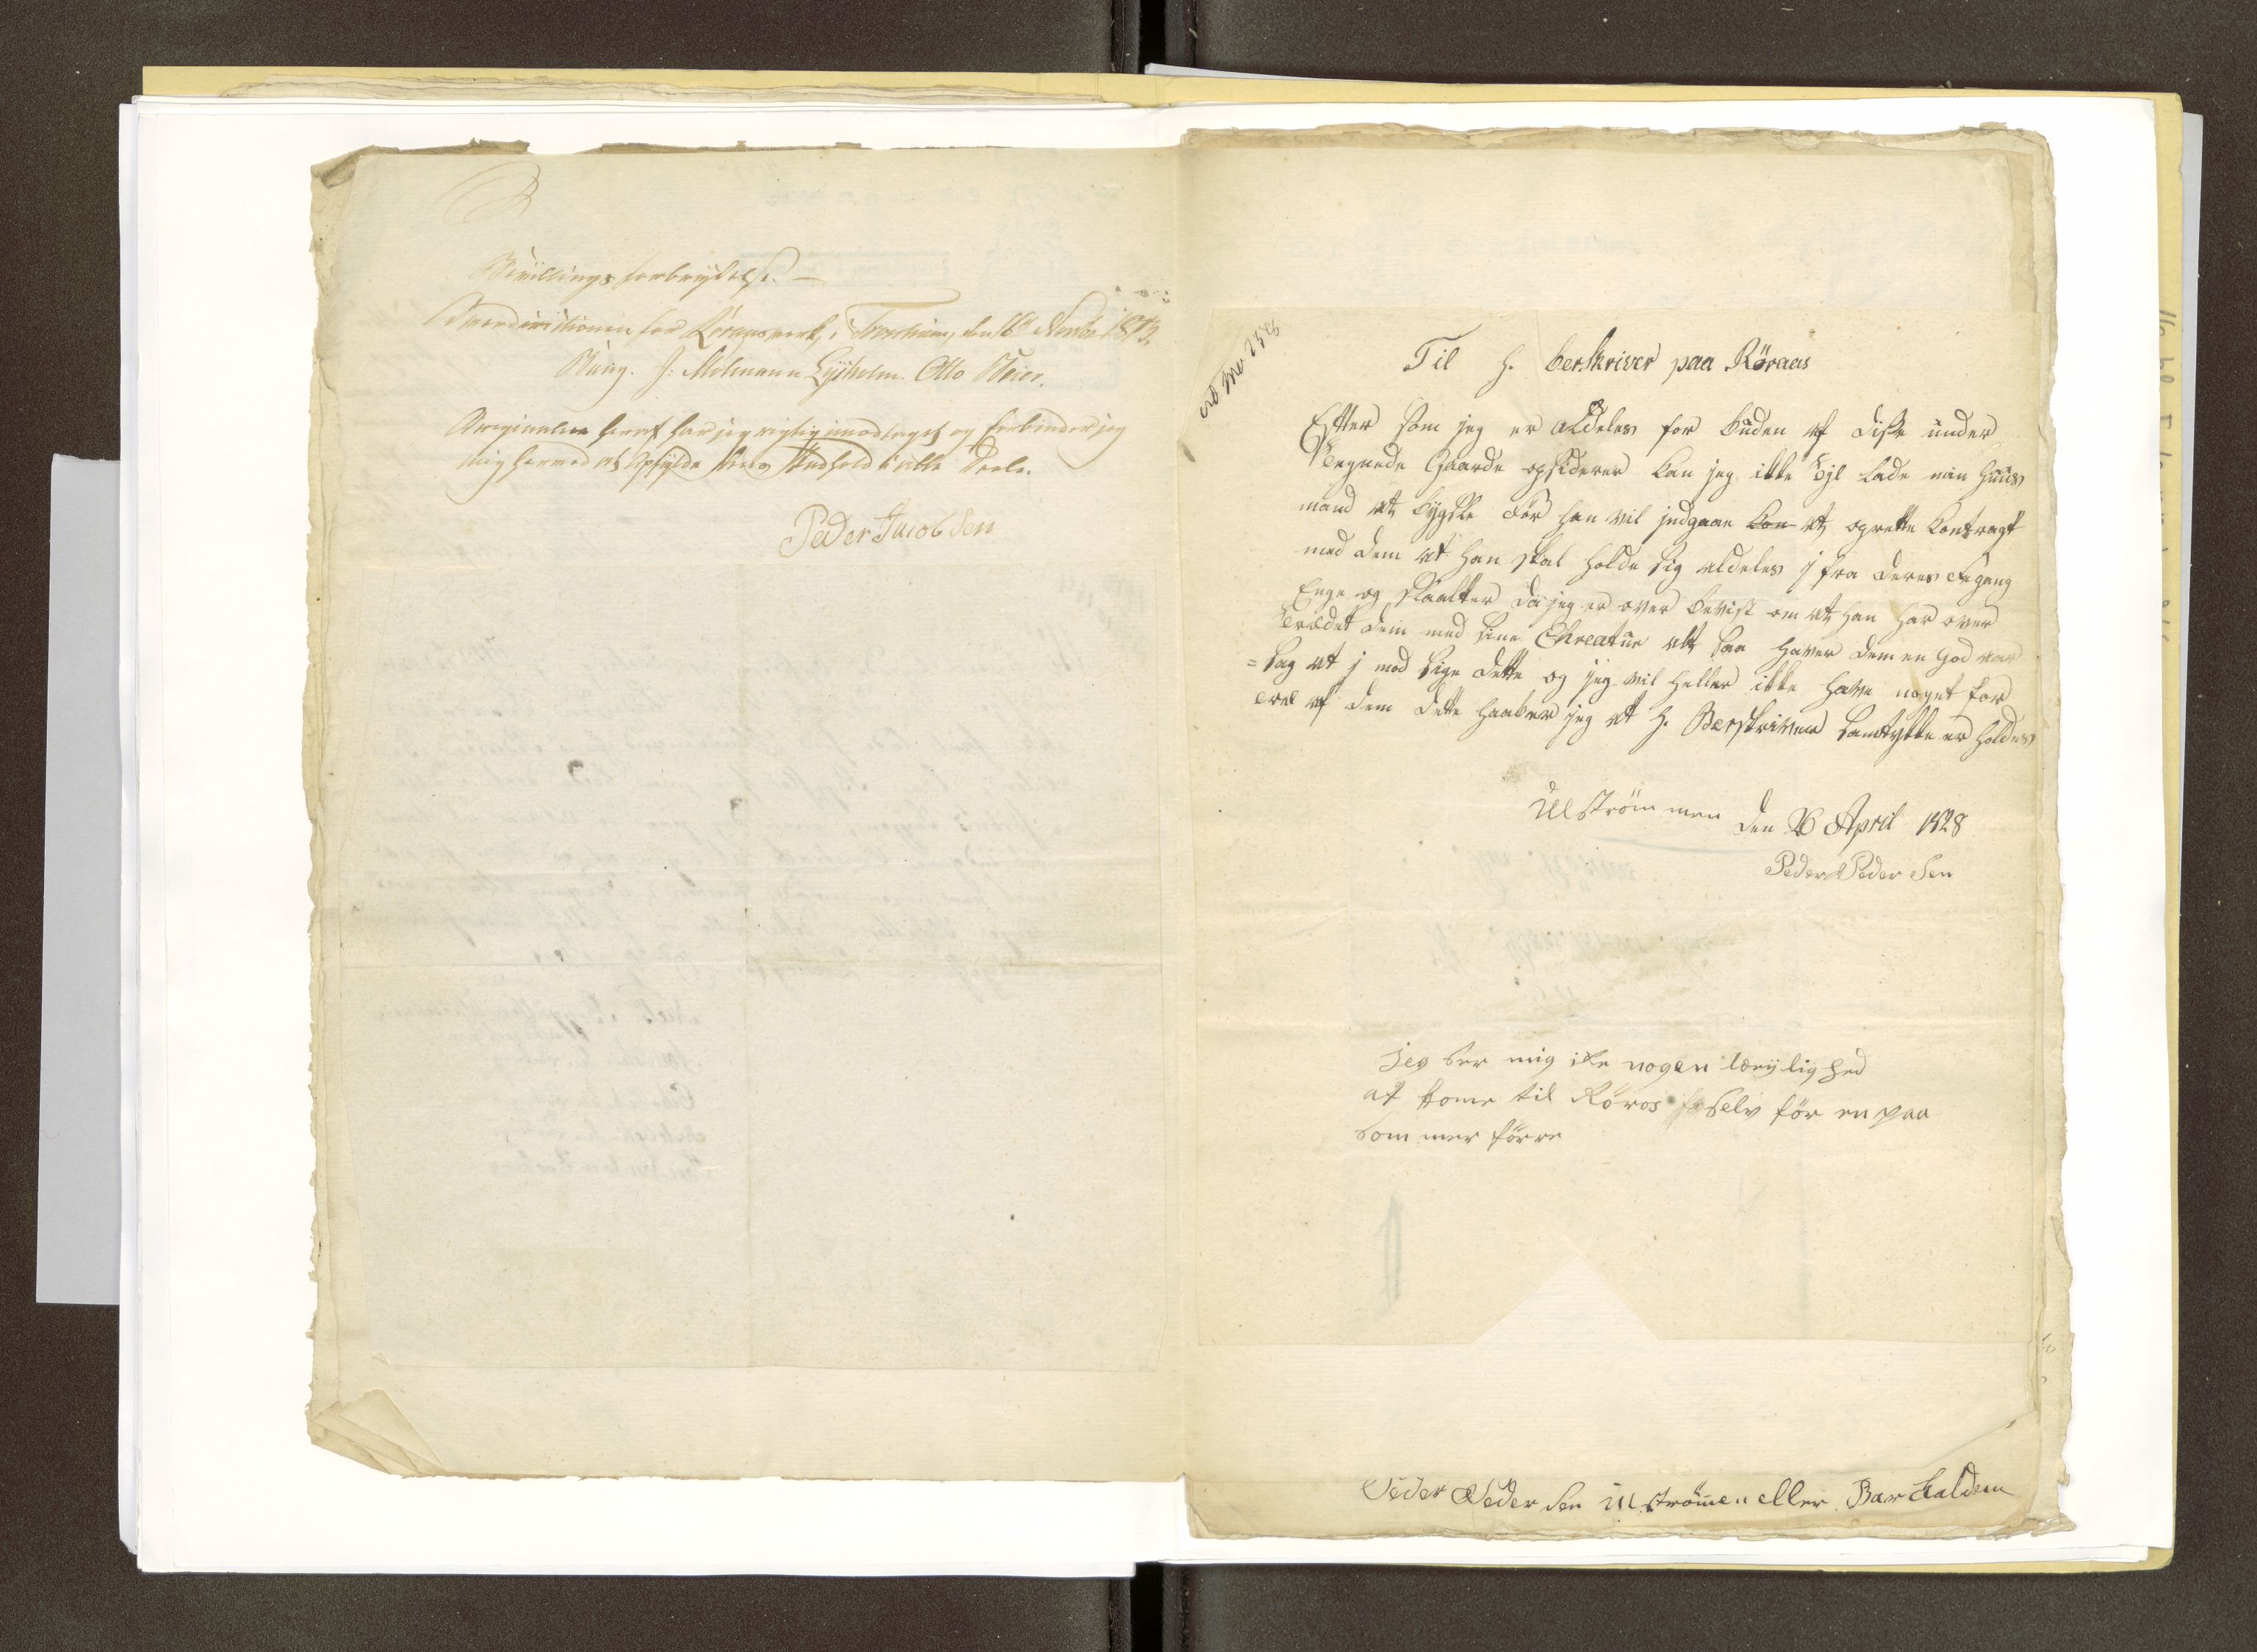 Bevillings forbrydelse. —
Participantionen for Röraasverk, i Tronhiem, den 16de Novbr 1812
Bing. J: Molmann Lysholm. Otto Beier.
Originalen heraf har jeg rigtig imodtaget og forbinder jeg
mig hermed at opfylde dens Indhold i alle Deele.
Peder Jacob Sen
ad No 238
Til H. berskriver paa Röraas
Efter som jeg er aldeles for buden af diße under
Tegnede Gaarde opsiderer kan jeg ikke lade min Huus
mand at bygsle før han vil indgaae Con at oprette Contragt
med dem at han skal holde sig aldeles i fra deres
Enge og Slaatter da jeg er over bevist om at han har over
trædet dem med sine Chreatur alt saa haver dem en God aar
=sag at i mod sige dette og jeg vil heller ikke have noget for
træd af dem dette haaber jeg at H. Berskriver samtykke er holdes
Ulströmmen den 26 April 1828
Peder Peder Sen
Jeg ser mig ike nogen læylighed
at kome til Röros selv för en paa
Som mer förre
Peder Peder Sen Ulströmen eller Bar kaldem